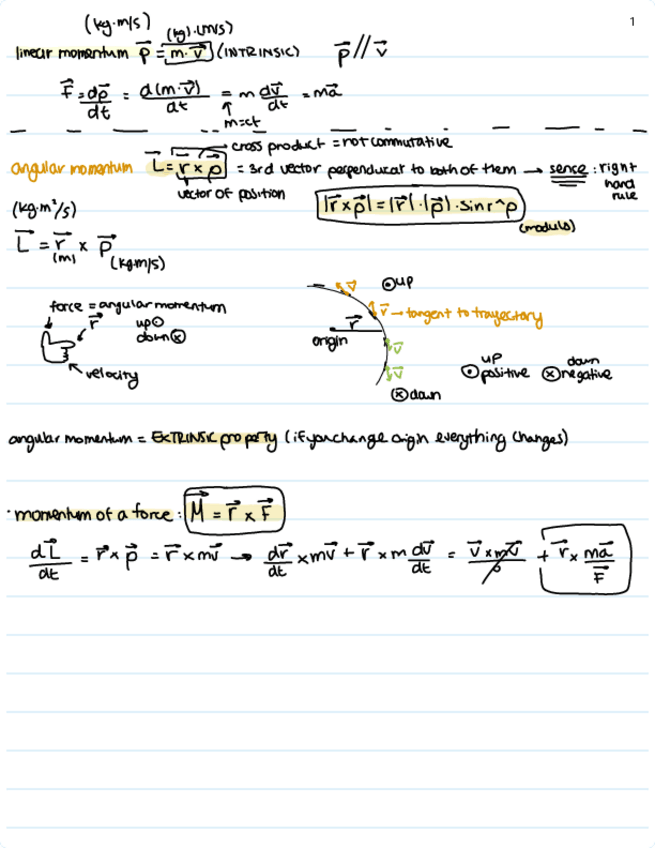 1
(kg·m/s) (kg)·(m/s)
linear momentum p⃗ = m·v⃗ (INTRINSIC) p⃗ // v⃗
F⃗ = dp⃗/dt = d(m·v⃗)/dt = m dv⃗/dt = ma⃗
↑
m=ct
cross product = not commutative
angular momentum L⃗ = r⃗ × p⃗ = 3rd vector perpenducar to both of them → sence : right hand rule
vector of position
(kg·m²/s) |r⃗ × p⃗| = |r⃗|·|p⃗|·sin r^p
(modulo)
L⃗ = r⃗ × p⃗
(m) (kgm/s)
v⃗ ⊙up
force = angular momentum v⃗ → tangent to trayectory
r⃗ up⊙ r⃗
down⊗ origin v⃗
velocity v⃗ up ⊙positive down ⊗negative
⊗down
angular momentum = EXTRINSIC property (if you change origin everything changes)
· momentum of a force : M⃗ = r⃗ × F⃗
dL⃗/dt = r⃗ × p⃗ = r⃗ × mv⃗ → dr⃗/dt × mv⃗ + r⃗ × m dv⃗/dt = v⃗ × mv⃗ + r⃗ × ma⃗
F⃗